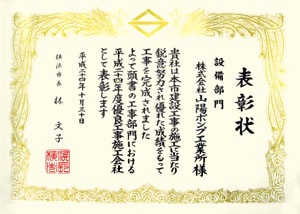 表彰状
設備部門
株式会社山陽ポンプ工業所様
貴社は本市建設工事の施工に当たり
鋭意努力され優れた成績をもって
工事を完成されました
よって頭書の工事部門における
平成二十四年度優良工事施工会社
として表彰します
平成二十四年十月三十日
横浜市長 林 文子